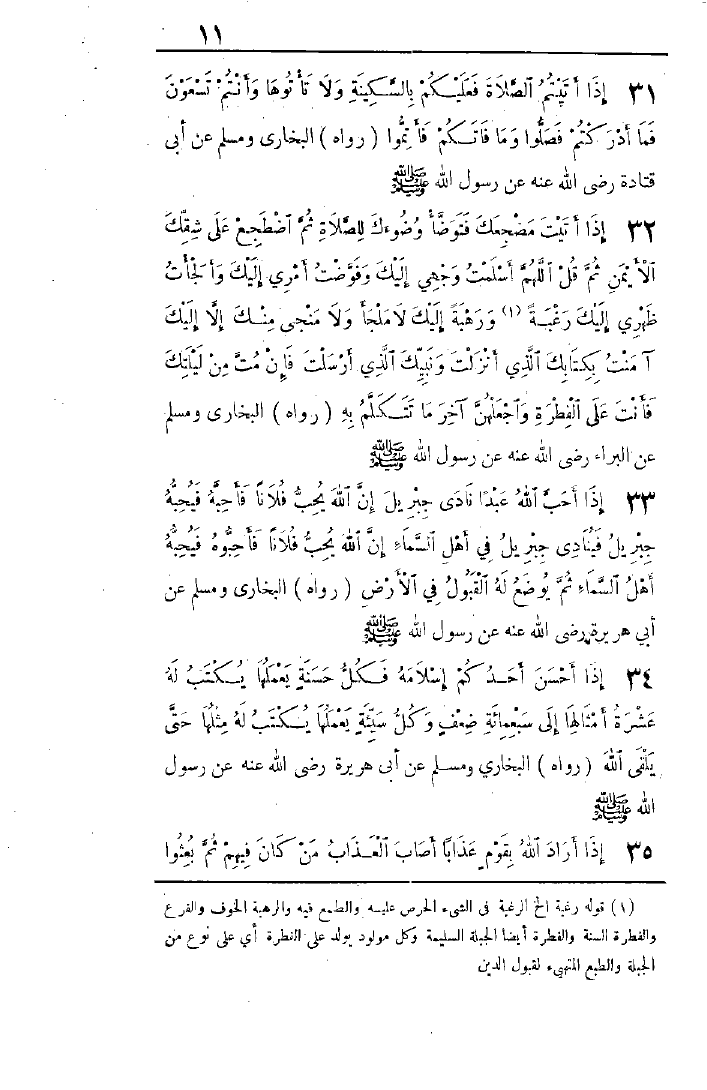 ١١
٣١ إِذَا أَتَيْتُمُ الصَّلَاةَ فَعَلَيْكُمْ بِالسَّكِينَةِ وَلَا تَأْتُوهَا وَأَنْتُمْ تَسْعَوْنَ
فَمَا أَدْرَكْتُمْ فَصَلُّوا وَمَا فَاتَكُمْ فَأَتِمُّوا ( رواه ) البخارى ومسلم عن أبى
قتادة رضى الله عنه عن رسول الله ﷺ
٣٢ إِذَا أَتَيْتَ مَضْجَعَكَ فَتَوَضَّأْ وُضُوءَكَ لِلصَّلَاةِ ثُمَّ اضْطَجِعْ عَلَى شِقِّكَ
الْأَيْمَنِ ثُمَّ قُلْ اَللَّهُمَّ أَسْلَمْتُ وَجْهِي إِلَيْكَ وَفَوَّضْتُ أَمْرِي إِلَيْكَ وَأَلْجَأْتُ
ظَهْرِي إِلَيْكَ رَغْبَةً (١) وَرَهْبَةً إِلَيْكَ لَا مَلْجَأَ وَلَا مَنْجَى مِنْكَ إِلَّا إِلَيْكَ
آمَنْتُ بِكِتَابِكَ الَّذِي أَنْزَلْتَ وَنَبِيِّكَ الَّذِي أَرْسَلْتَ فَإِنْ مُتَّ مِنْ لَيْلَتِكَ
فَأَنْتَ عَلَى الْفِطْرَةِ وَاجْعَلْهُنَّ آخِرَ مَا تَتَكَلَّمُ بِهِ ( رواه ) البخارى ومسلم
عن البراء رضى الله عنه عن رسول الله ﷺ
٣٣ إِذَا أَحَبَّ اللهُ عَبْدًا نَادَى جِبْرِيلَ إِنَّ اللهَ يُحِبُّ فُلَانًا فَأَحِبَّهُ فَيُحِبُّهُ
جِبْرِيلُ فَيُنَادِى جِبْرِيلُ فِي أَهْلِ السَّمَاءِ إِنَّ اللهَ يُحِبُّ فُلَانًا فَأَحِبُّوهُ فَيُحِبُّهُ
أَهْلُ السَّمَاءِ ثُمَّ يُوضَعُ لَهُ الْقَبُولُ فِي الْأَرْضِ ( رواه ) البخارى ومسلم عن
أبي هريرة رضى الله عنه عن رسول الله ﷺ
٣٤ إِذَا أَحْسَنَ أَحَدُكُمْ إِسْلَامَهُ فَكُلُّ حَسَنَةٍ يَعْمَلُهَا يُكْتَبُ لَهُ
عَشْرَةُ أَمْثَالِهَا إِلَى سَبْعِمِائَةِ ضِعْفٍ وَكُلُّ سَيِّئَةٍ يَعْمَلُهَا يُكْتَبُ لَهُ مِثْلُهَا حَتَّى
يَلْقَى اللهَ ( رواه ) البخاري ومسلم عن أبى هريرة رضى الله عنه عن رسول
الله ﷺ
٣٥ إِذَا أَرَادَ اللهُ بِقَوْمٍ عَذَابًا أَصَابَ الْعَذَابُ مَنْ كَانَ فِيهِمْ ثُمَّ بُعِثُوا
(١) قوله رغبة الخ الرغبة فى الشيء الحرص عليه والطمع فيه والرهبة الخوف والفزع
والفطرة السنة والفطرة أيضا الجبلة السليمة وكل مولود يولد على الفطرة أي على نوع من
الجبلة والطبع المتهيء لقبول الدين